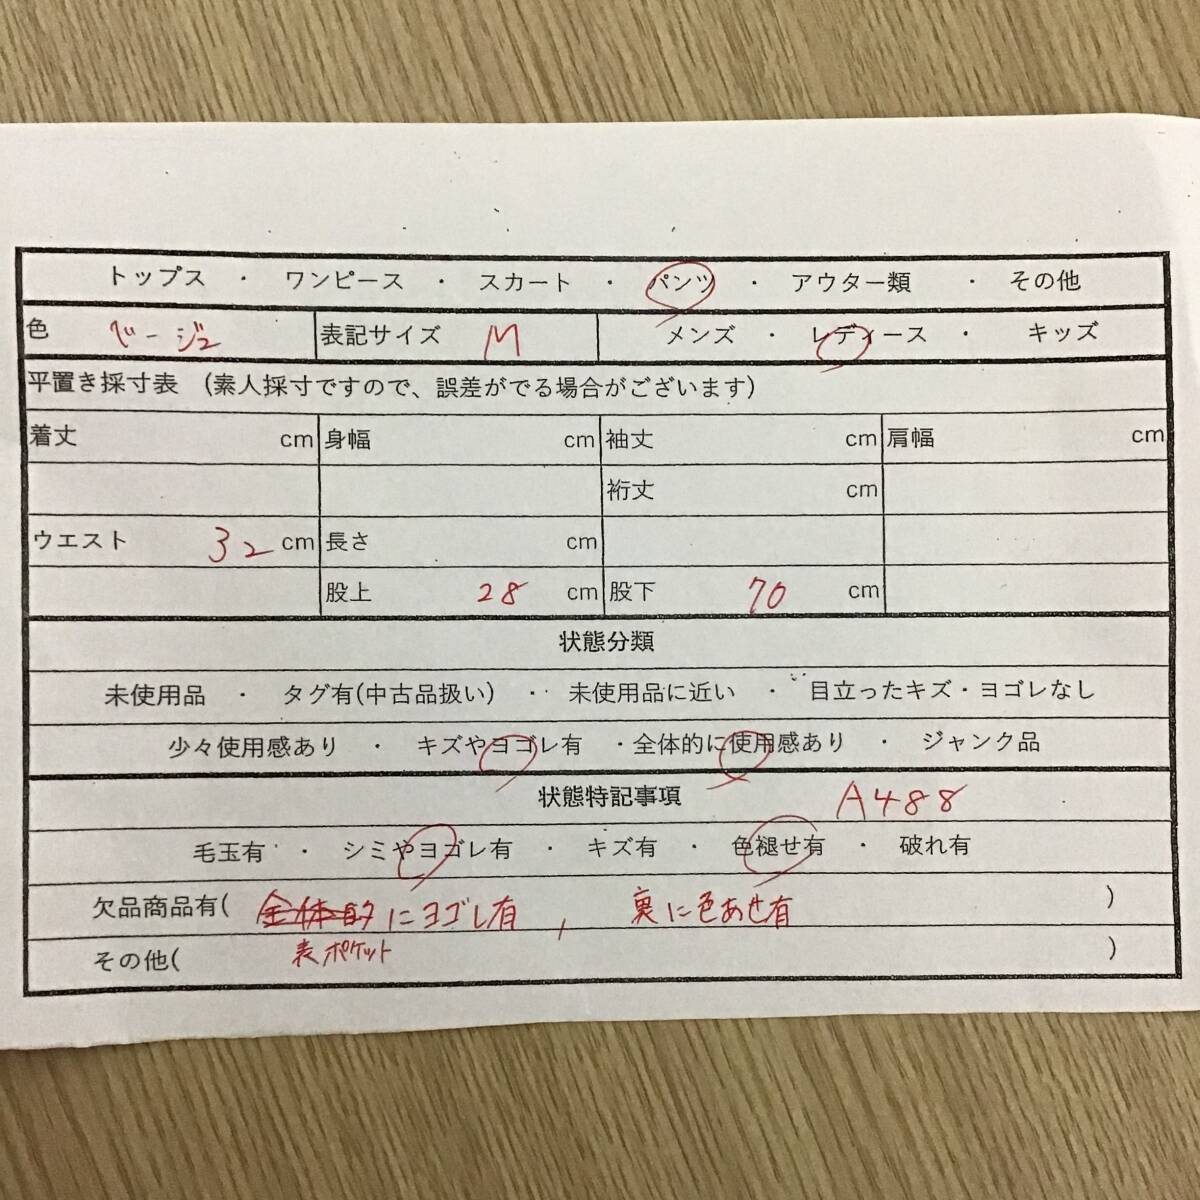 トップス ・ ワンピース ・ スカート ・ パンツ ・ アウター類 ・ その他
色 ベージュ 表記サイズ M メンズ ・ レディース ・ キッズ
平置き採寸表 (素人採寸ですので、誤差がでる場合がございます)
着丈 cm 身幅 cm 袖丈 cm 肩幅 cm
裄丈 cm
ウエスト 32 cm 長さ cm
股上 28 cm 股下 70 cm
状態分類
未使用品 ・ タグ有(中古品扱い) ・ 未使用品に近い ・ 目立ったキズ・ヨゴレなし
少々使用感あり ・ キズやヨゴレ有 ・全体的に使用感あり ・ ジャンク品
状態特記事項 A488
毛玉有 ・ シミやヨゴレ有 ・ キズ有 ・ 色褪せ有 ・ 破れ有
欠品商品有( 全体的にヨゴレ有, 裏に色あせ有 )
その他( 表ポケット )